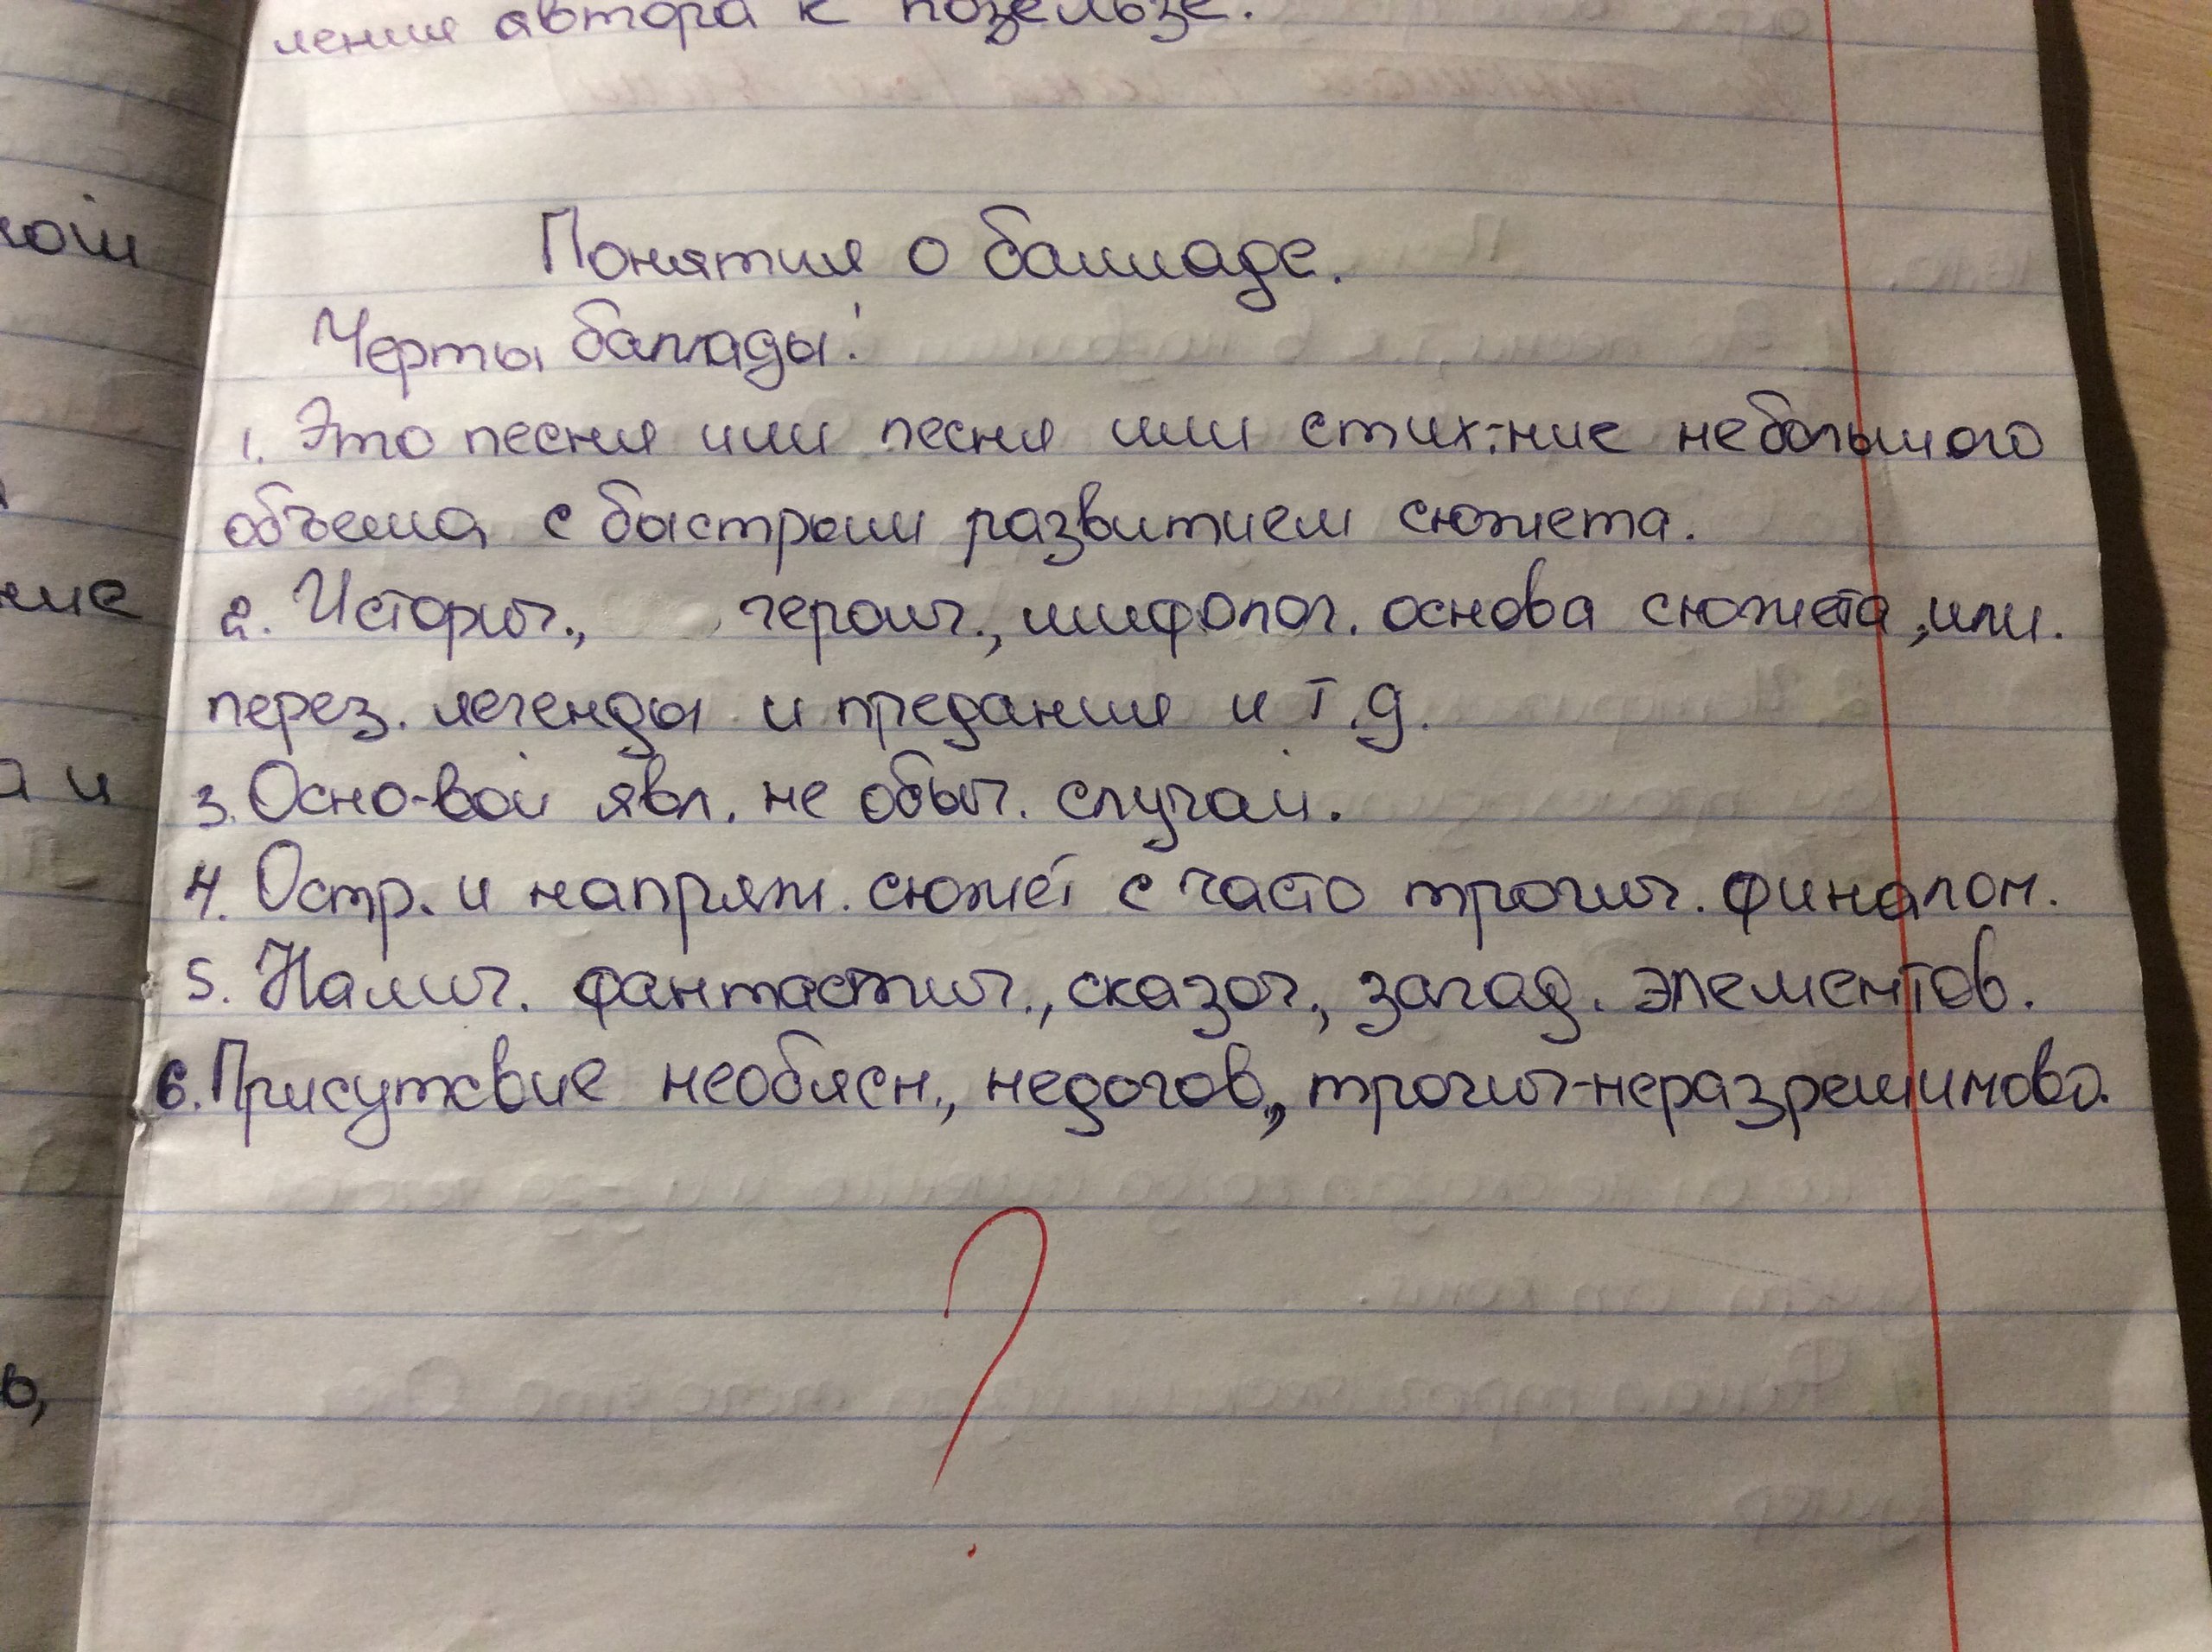 ления автора к
Понятия о балладе.
Черты баллады:
1. Это песня или песня или стих-ние небольшого
объема с быстрым развитием сюжета.
2. Истории., героич., мифолог. основа сюжета, или.
перез. легенды и предания и т.д.
3. Осно-вой явл. не обыч. случай.
4. Остр. и напряж. сюжет с часто трогич. финалом.
5. Налич. фантастич., сказоч., загад. элементов.
6. Присутсвие необясн., недогов., трогич-неразрешимова.
?
ние
а и
ь,